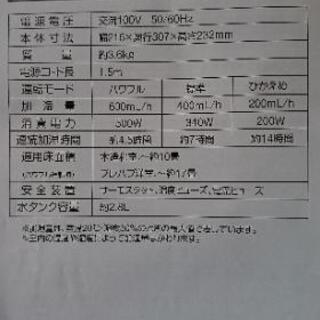 電源電圧 交流100V 50/60Hz
本体寸法 幅216×奥行307×高さ232mm
質量 約3.6kg
電源コード長 1.5m
運転モード パワフル 標準 ひかえめ
加湿量 600mL/h 400mL/h 200mL/h
消費電力 500W 340W 200W
連続加湿時間 約4.5時間 約7時間 約14時間
適用床面積 木造和室〜約10畳
プレハブ洋室〜約17畳
安全装置 サーモスタット、温度ヒューズ、電流ヒューズ
水タンク容量 約2.8L